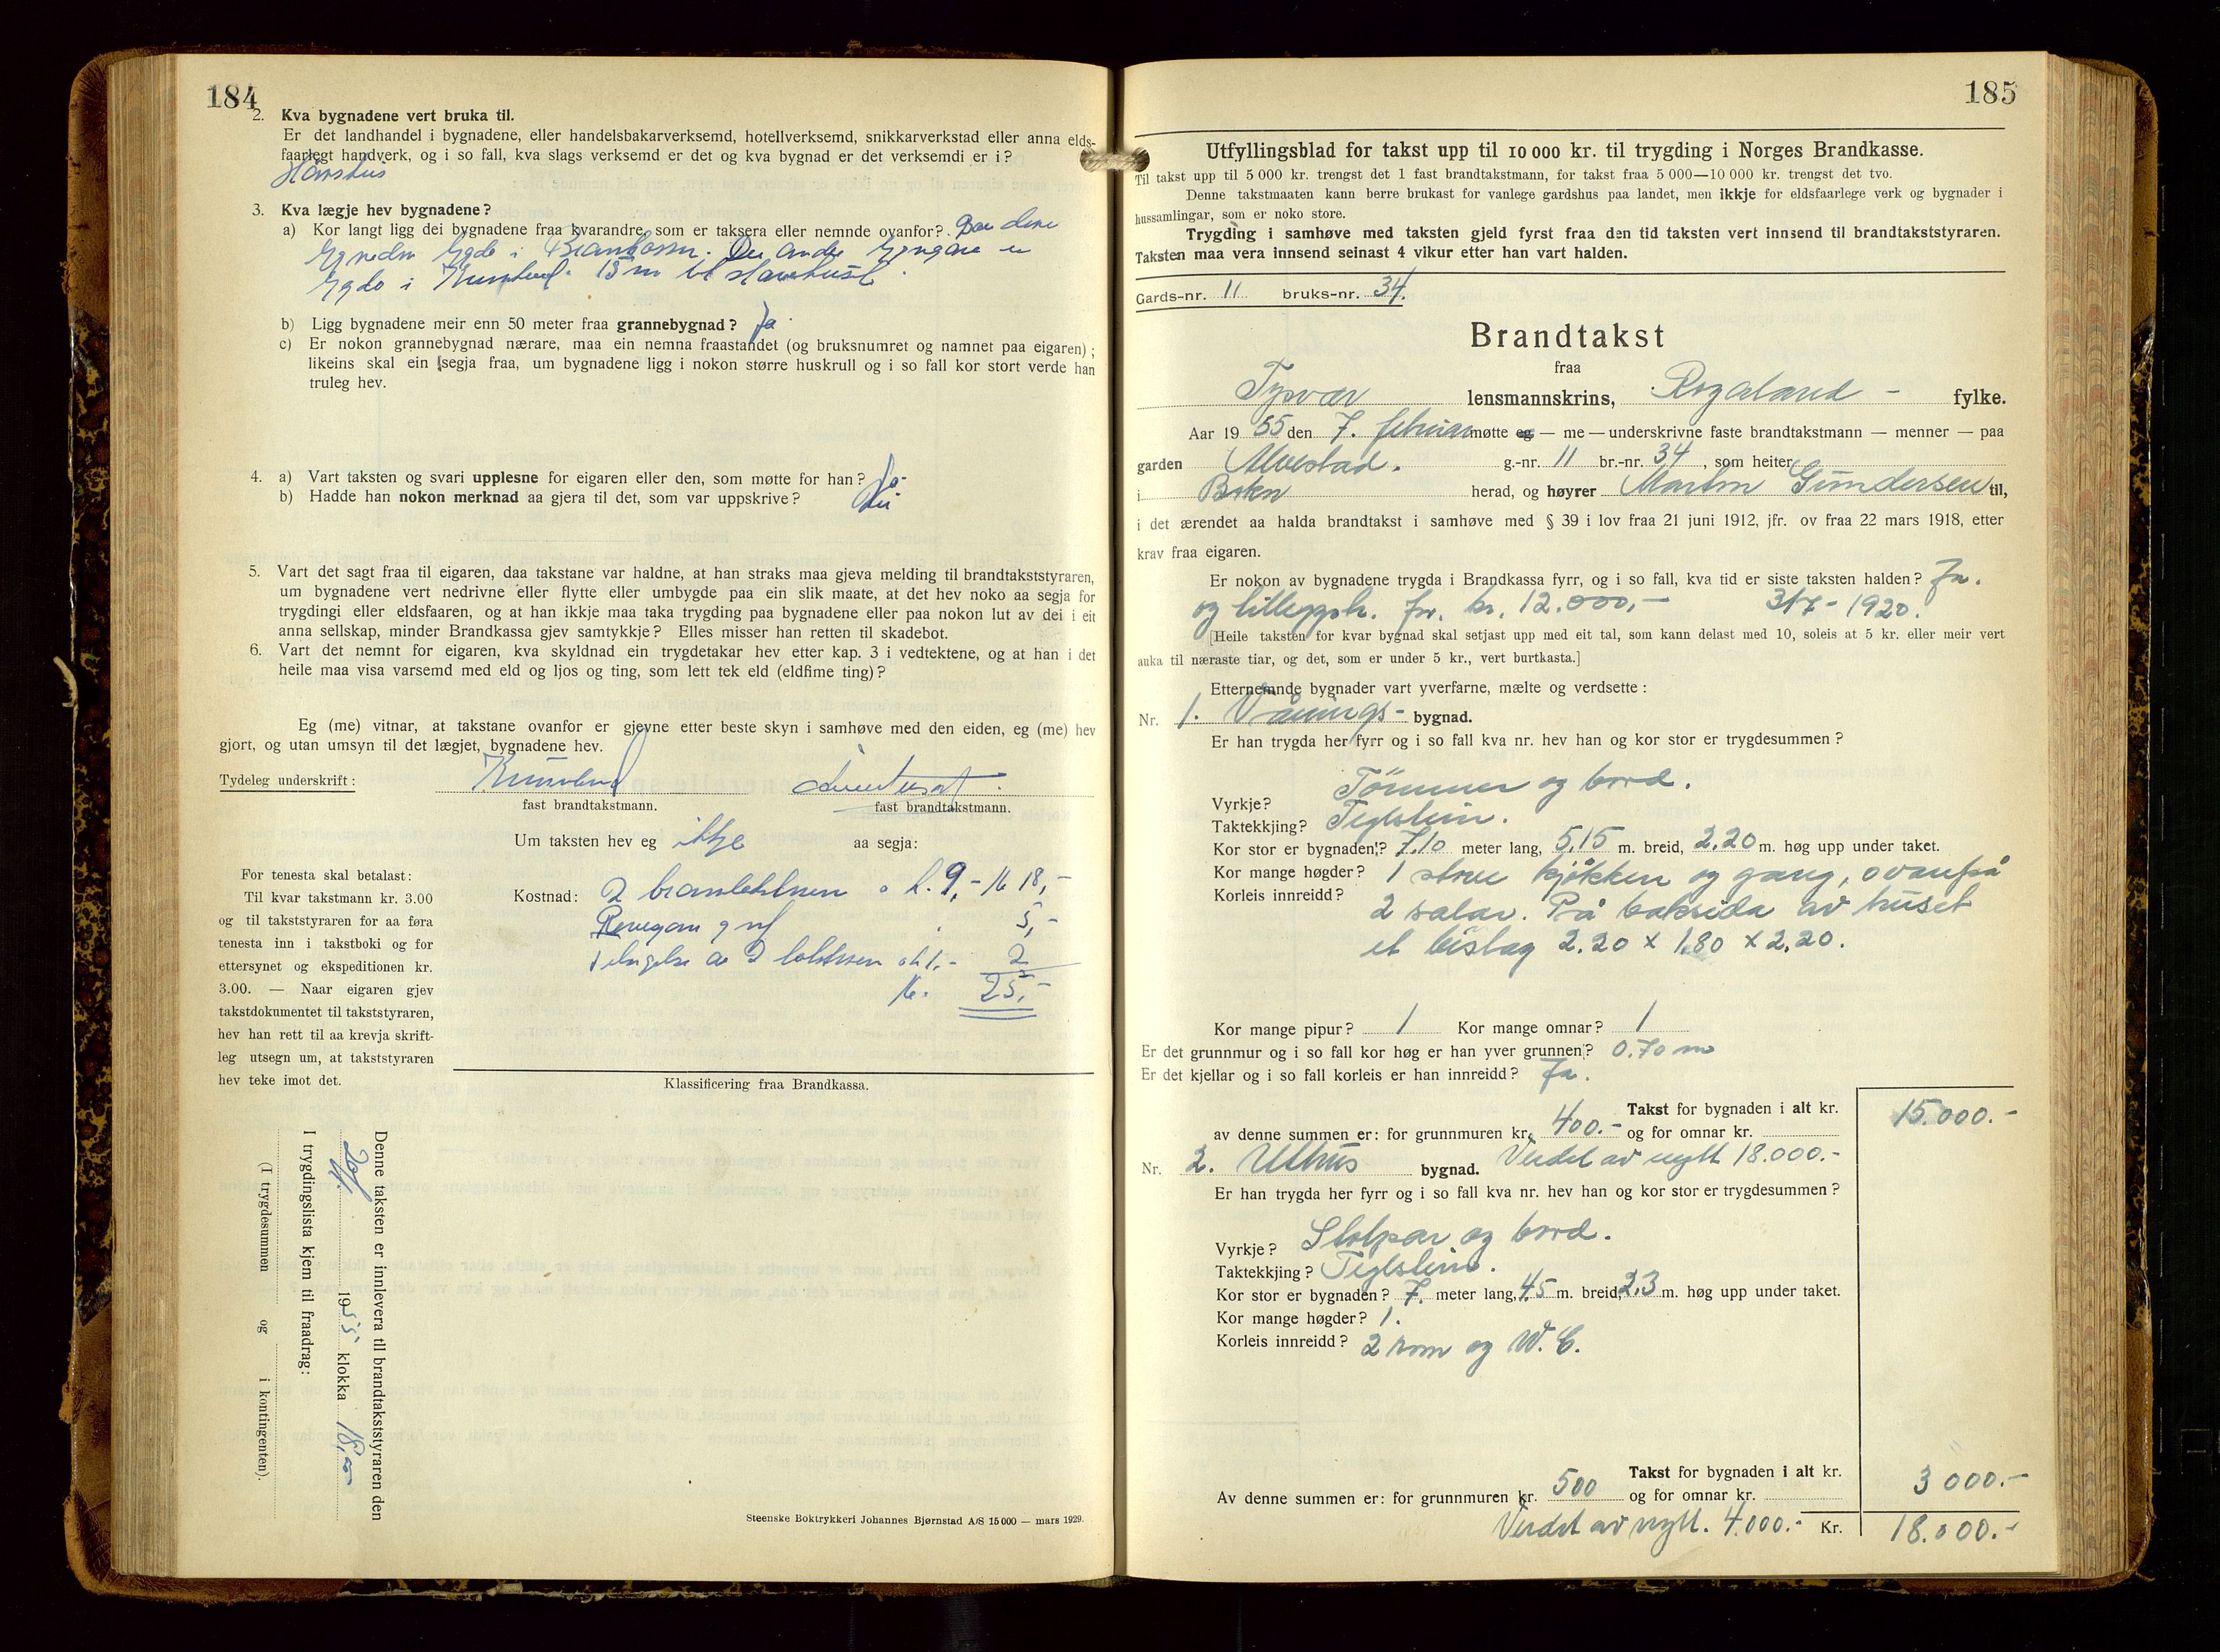 184
2. Kva bygnadene vert bruka til.
Er det landhandel i bygnadene, eller handelsbakarverksemd, hotellverksemd, snikkarverkstad eller anna elds-
faarlegt handverk, og i so fall, kva slags verksemd er det og kva bygnad er det verksemdi er i?
3. Kva lægje hev bygnadene?
a) Kor langt ligg dei bygnadene fraa kvarandre, som er taksera eller nemnde ovanfor?
i 15 m til
b) Ligg bygnadene meir enn 50 meter fraa grannebygnad? Ja
c) Er nokon grannebygnad nærare, maa ein nemna fraastandet (og bruksnumret og namnet paa eigaren);
likeins skal ein segja fraa, um bygnadene ligg i nokon større huskrull og i so fall kor stort verde han
truleg hev.
4. a) Vart taksten og svari upplesne for eigaren eller den, som møtte for han? Ja
b) Hadde han nokon merknad aa gjera til det, som var uppskrive? Nei
5. Vart det sagt fraa til eigaren, daa takstane var haldne, at han straks maa gjeva melding til brandtakststyraren,
um bygnadene vert nedrivne eller flytte eller umbygde paa ein slik maate, at det hev noko aa segja for
trygdingi eller eldsfaaren, og at han ikkje maa taka trygding paa bygnadene eller paa nokon lut av dei i eit
anna sellskap, minder Brandkassa gjev samtykkje? Elles misser han retten til skadebot.
6. Vart det nemnt for eigaren, kva skyldnad ein trygdetakar hev etter kap. 3 i vedtektene, og at han i det
heile maa visa varsemd med eld og ljos og ting, som lett tek eld (eldfime ting)?
Eg (me) vitnar, at takstane ovanfor er gjevne etter beste skyn i samhøve med den eiden, eg (me) hev
gjort, og utan umsyn til det lægjet, bygnadene hev.
Tydeleg underskrift:
fast brandtakstmann. fast brandtakstmann.
Um taksten hev eg ikkje aa segja:
For tenesta skal betalast:
Til kvar takstmann kr. 3.00
og til takststyraren for aa føra
tenesta inn i takstboki og for
ettersynet og ekspeditionen kr.
3.00. — Naar eigaren gjev
takstdokumentet til takststyraren,
hev han rett til aa krevja skrift-
leg utsegn um, at takststyraren
hev teke imot det.
Kostnad: 2 9,- 18,-
5,-
2 2
25,-
Klassificering fraa Brandkassa.
Denne taksten er innlevera til brandtakststyraren den
1955 klokka 18,00
I trygdingslista kjem til fraadrag:
(I trygdesummen og i kontingenten).
Steenske Boktrykkeri Johannes Bjørnstad A/S 15 000 — mars 1929.
185
Utfyllingsblad for takst upp til 10 000 kr. til trygding i Norges Brandkasse.
Til takst upp til 5 000 kr. trengst det 1 fast brandtakstmann, for takst fraa 5 000—10 000 kr. trengst det tvo.
Denne takstmaaten kann berre brukast for vanlege gardshus paa landet, men ikkje for eldsfaarlege verk og bygnader i
hussamlingar, som er noko store.
Trygding i samhøve med taksten gjeld fyrst fraa den tid taksten vert innsend til brandtakststyraren.
Taksten maa vera innsend seinast 4 vikur etter han vart halden.
Gards-nr. 11 bruks-nr. 34.
Brandtakst
fraa
Tysvær lensmannskrins, Rogaland - fylke.
Aar 1955 den 7. februar møtte eg — me — underskrivne faste brandtakstmann — menner — paa
garden Alvestad. g.-nr. 11 br.-nr. 34, som heiter
i Bokn herad, og høyrer Martin Gundersen til,
i det ærendet aa halda brandtakst i samhøve med § 39 i lov fraa 21 juni 1912, jfr. ov fraa 22 mars 1918, etter
krav fraa eigaren.
Er nokon av bygnadene trygda i Brandkassa fyrr, og i so fall, kva tid er siste taksten halden? Ja.
og tilleggsh. for kr. 12.000,- 3/7-1920.
[Heile taksten for kvar bygnad skal setjast upp med eit tal, som kann delast med 10, soleis at 5 kr. eller meir vert
auka til næraste tiar, og det, som er under 5 kr., vert burtkasta.]
Etternemnde bygnader vart yverfarne, mælte og verdsette:
Nr. 1. Vånings- bygnad.
Er han trygda her fyrr og i so fall kva nr. hev han og kor stor er trygdesummen?
Vyrkje? Tömmer og bord.
Taktekkjing? Teglstein.
Kor stor er bygnaden? 7.10 meter lang, 5,15 m. breid, 2.20 m. høg upp under taket.
Kor mange høgder? 1 stue kjøkken og gang, ovanpå
Korleis innreidd? 2 salar. På baksida av huset
et bislag 2.20 x 1.80 x 2.20.
Kor mange pipur? 1 Kor mange omnar? 1
Er det grunnmur og i so fall kor høg er han yver grunnen? 0.70 m
Er det kjellar og i so fall korleis er han innreidd? Ja.
Takst for bygnaden i alt kr. 15.000.-
av denne summen er: for grunnmuren kr. 400.- og for omnar kr.
Nr. 2. Uthus bygnad. Verdet av nytt 18.000.-
Er han trygda her fyrr og i so fall kva nr. hev han og kor stor er trygdesummen?
Vyrkje? Stolpar og bord.
Taktekkjing? Teglstein.
Kor stor er bygnaden? 7. meter lang, 4.5 m. breid, 2,3 m. høg upp under taket.
Kor mange høgder? 1.
Korleis innreidd? 2 rom og W. C.
Takst for bygnaden i alt kr. 3 000.-
Av denne summen er: for grunnmuren kr. 500 og for omnar kr.
Verdet av nytt. 4.000.- Kr. 18.000.-